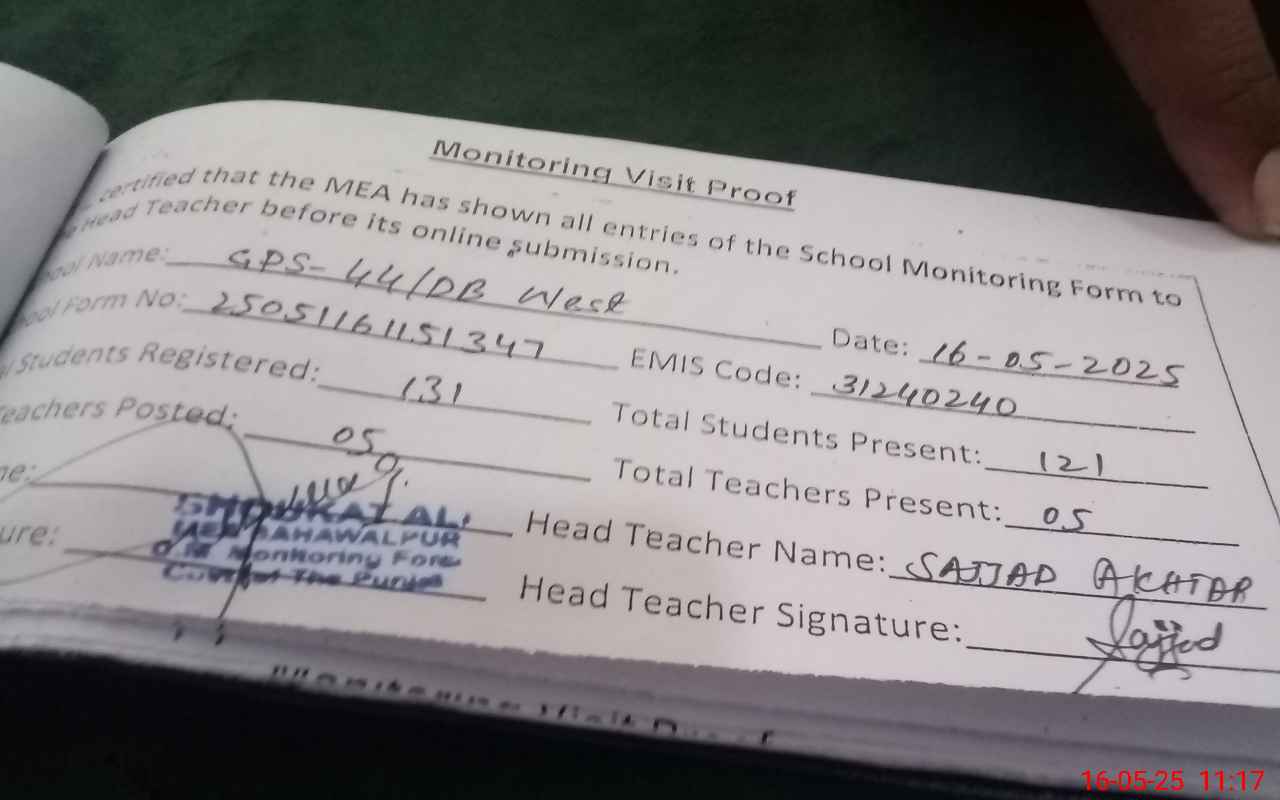 Monitoring Visit Proof
certified that the MEA has shown all entries of the School Monitoring Form to
Head Teacher before its online submission.
ool Name: GPS-44/DB West Date: 16-05-2025
ool Form No: 25051161151347 EMIS Code: 31240240
l Students Registered: 131 Total Students Present: 121
eachers Posted: 05 Total Teachers Present: 05
me: Head Teacher Name: SAJJAD AKHTAR
SHOUKAT ALI
MEA BAHAWALPUR
Monitoring Force
Govt of The Punjab
ure: Head Teacher Signature: Sajjad
Monitoring Visit Proof
16-05-25 11:17